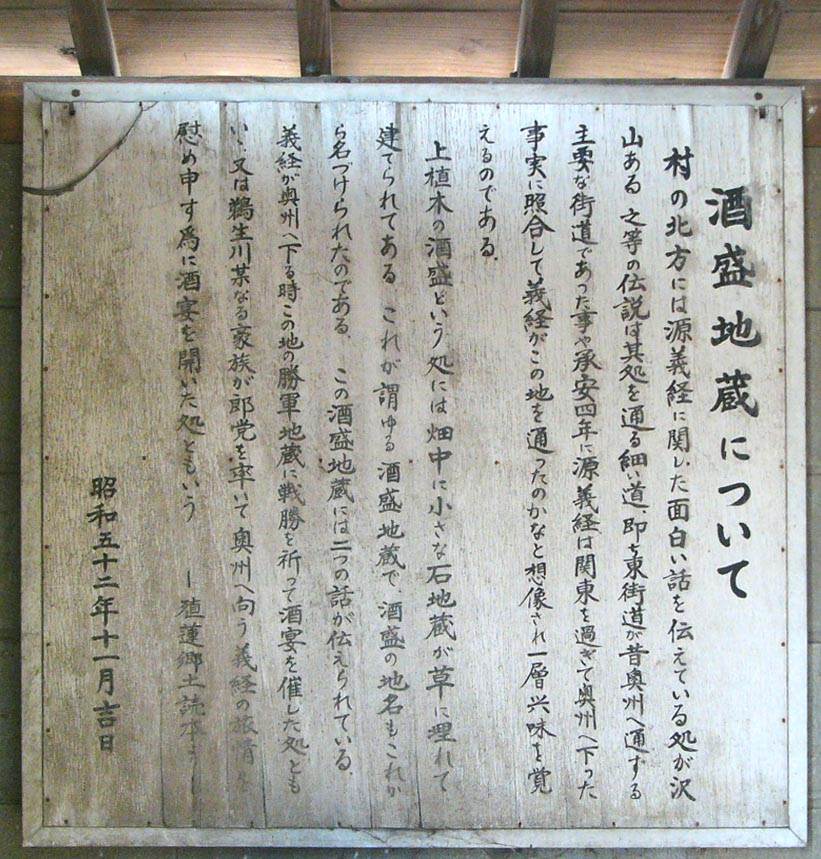 酒盛地蔵について
村の北方には源義経に関した面白い話を伝えている処が沢
山ある 之等の伝説は其処を通る細い道、即ち東街道が昔奥州へ通ずる
主要な街道であった事や承安四年に源義経は関東を過ぎて奥州へ下った
事実に照合して義経がこの地を通ったのかなと想像され一層興味を覚
えるのである。
上植木の酒盛という処には畑中に小さな石地蔵が草に埋れて
建てられてある これが謂ゆる酒盛地蔵で、酒盛の地名もこれか
ら名づけられたのである、 この酒盛地蔵には二つの話が伝えられている、
義経が奥州へ下る時この地の勝軍地蔵に戦勝を祈って酒宴を催した処とも
いゝ又は鵜生川某なる豪族が郎党を率いて奥州へ向う義経の旅情を
慰め申す為に酒宴を開いた処ともいう ー殖蓮郷土読本よりー
昭和五十二年十一月吉日